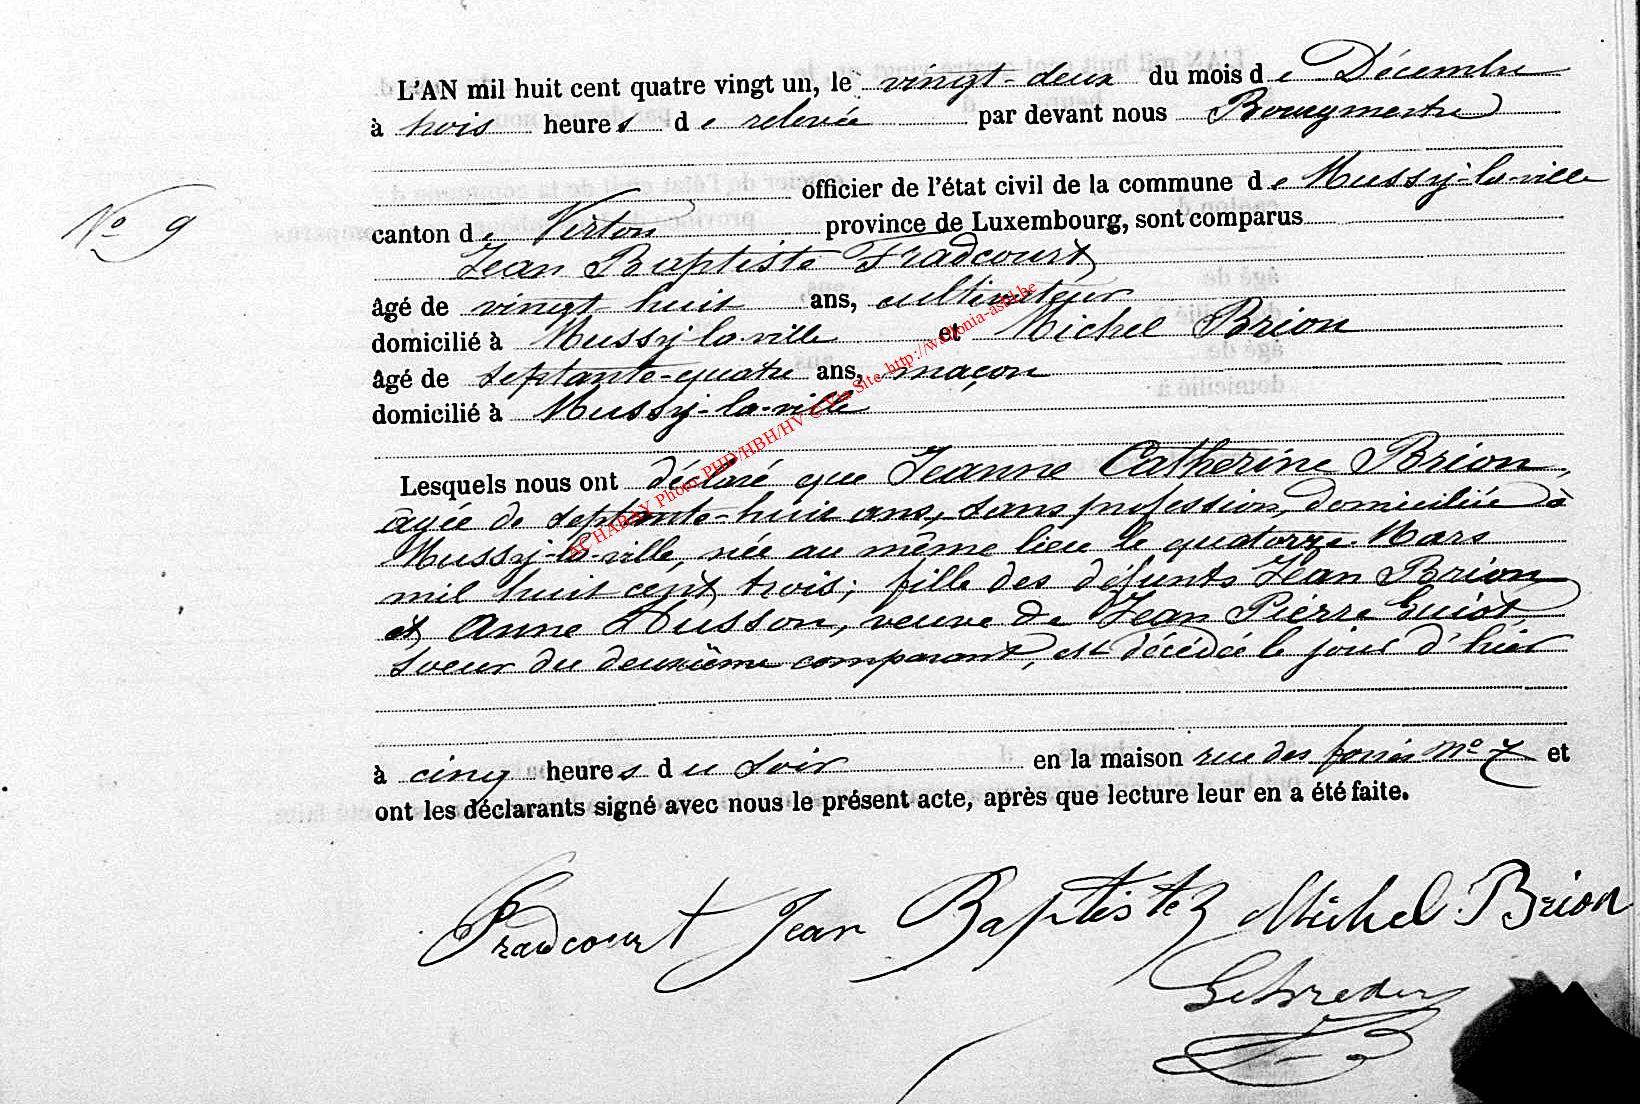 L'AN mil huit cent quatre vingt un, le vingt-deux du mois de Décembre
à trois heures de relevée par devant nous Bourgmestre
officier de l'état civil de la commune de Mussy-la-ville
No 9
canton de Virton province de Luxembourg, sont comparus
Jean Baptiste Fradcourt
âgé de vingt huit ans, cultivateur
domicilié à Mussy-la-ville et Michel Brion
âgé de septante-quatre ans, maçon
domicilié à Mussy-la-ville
Lesquels nous ont déclaré que Jeanne Catherine Brion,
agée de septante-huit ans, sans profession, domiciliée à
Mussy-la-ville, née au même lieu le quatorze Mars
mil huit cent trois; fille des défunts Jean Brion
et Anne Husson, veuve de Jean Pierre Guiot,
soeur du deuxième comparant, est décédée le jour d'hier
à cinq heures du soir en la maison rue des No 7 et
ont les déclarants signé avec nous le présent acte, après que lecture leur en a été faite.
Fradcourt Jean Baptiste Michel Brion
AC HABAY Photo PHD/HBH/HV © Via Site http://wallonia-asbl.be